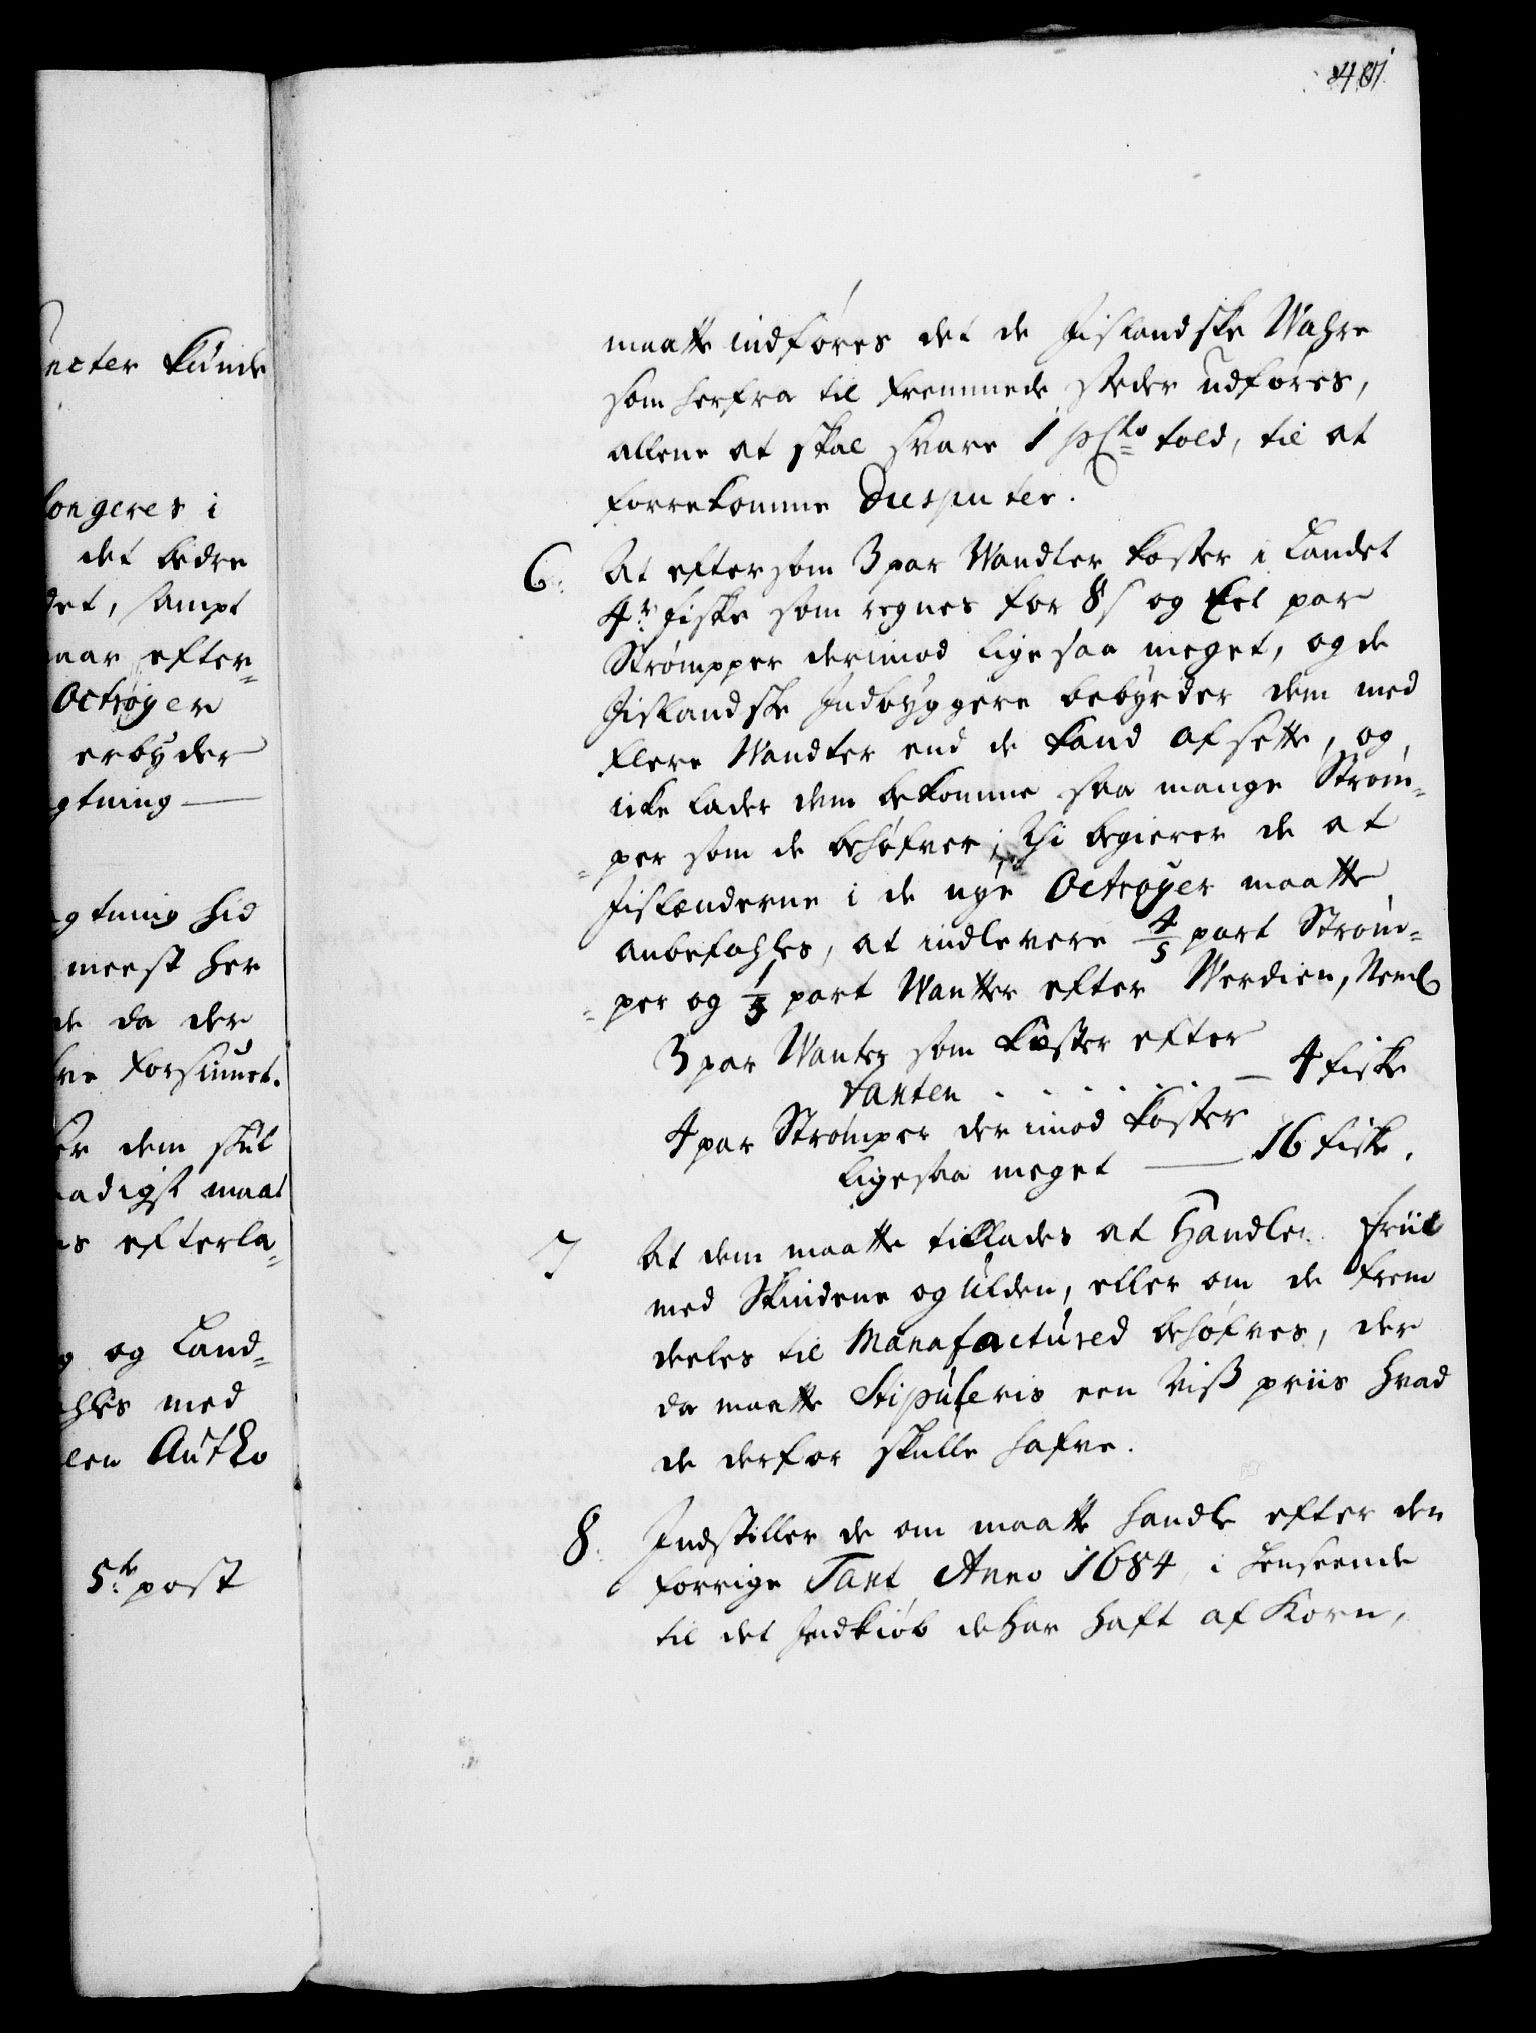 401
ncter kunde
longeres i
det bedre
det, sampt
naar efter-
Octrøyer
erbyder
gtning
gtning hid
meest her
de da der
forsiunet.
er dem skul
aadigst maat
es efterla-
og Land-
hles med
len Autho
5te post
maatte indføres det de Jislandske Wahre
som herfra til fremmede steder udføres,
allene at skal svare 1 pCto told, til at
forrekomme Disputer.
6. At eftersom 3 par Wandter koster i Landet
4r fiske som regnes for 8 s og Eet par
Strømpper derimod lige saa meget, og de
Jislandske Indbyggere bebyrder dem med
flere Wandter end de kand afsette, og
icke lader dem bekomme saa mange Strøm-
per som de behøfver; Thi begierer de at
Jislænderne i de nye Octroyer maatte
anbefahles, at indlevere 4/5 part Strøm-
per og 1/5 part Wantter efter Werdien, Neml
3 par Wanter som koster efter
taxten . . . . . . 4 fiske
4 par Strømper derimod koster
ligesaa meget 16 fiske.
7 At dem maatte tillades at Handle friit
med Skindene og Ulden, eller om de frem
deeles til Manufactured behøfves, der
da maatte Stipuleris een Viss priis hvad
de derfor skulle hafve.
8. Indstiller de om maatte handle efter den
forrige Taxt Anno 1684, i henseende
til det Indkiøb de har haft af Korn,